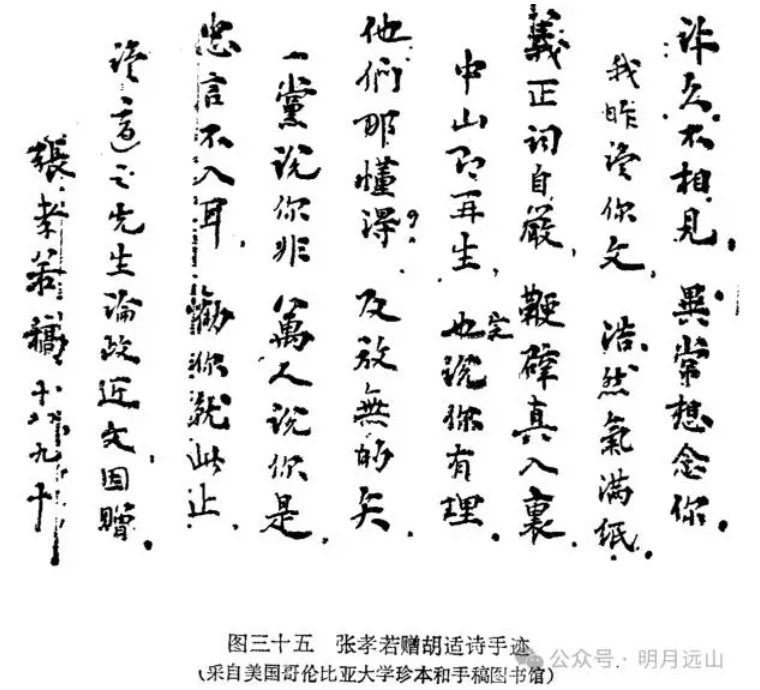 许久不相见，異常想念你。
我昨读你文，浩然氣满纸。
義正词自嚴，鞭辟真入裏。
中山即再生，也定说你有理。
他们那懂得，反放無的矢。
一黨说你非，萬人说你是。
忠言不入耳，勸你就此止。
读适之先生論政近文，因贈。
張孝若稿 十八，九，十
图三十五 张孝若赠胡适诗手迹
（采自美国哥伦比亚大学珍本和手稿图书馆）
公众号·明月远山